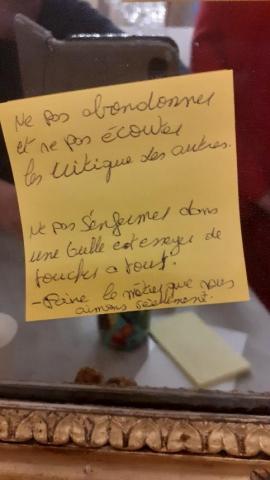 Ne pas abandonner
et ne pas écouter
les critique des autres.
Ne pas s'enfermer dans
une bulle et essayer de
toucher a tout.
- Faire le métier que nous
aimons réellement.